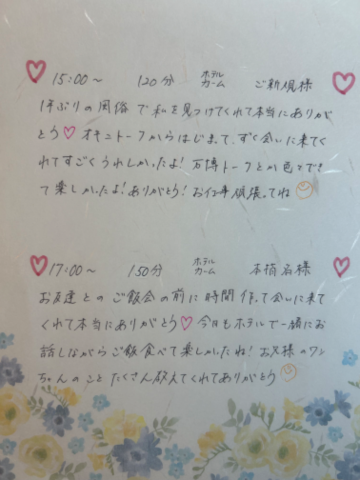 ♡ 15:00～ 120分 ホテルカーム ご新規様
1年ぶりの風俗で私を見つけてくれて本当にありが
とう♡ オキニトークからはじまって、すぐ会いに来てく
れてすごくうれしかったよ! 万博トークとか色々でき
て楽しかったよ! ありがとう! お仕事頑張ってね
♡ 17:00～ 150分 ホテルカーム 本指名様
お友達とのご飯会の前に時間作って会いに来て
くれて本当にありがとう♡ 今日もホテルで一緒にお
話しながらご飯食べて楽しかったね! お兄様のワン
ちゃんのことたくさん教えてくれてありがとう